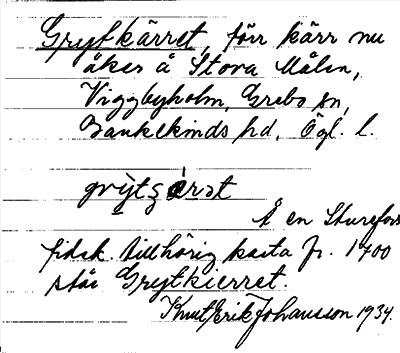 Grytkärret, förr kärr nu
åker å Stora Målen,
Viggbyholm, Grebo sn,
Bankekinds hd, Ögl. l.
Å en Sturefors
fidek. tillhörig karta fr. 1700
står Grytkierret.
Knut Erik Johansson 1934.